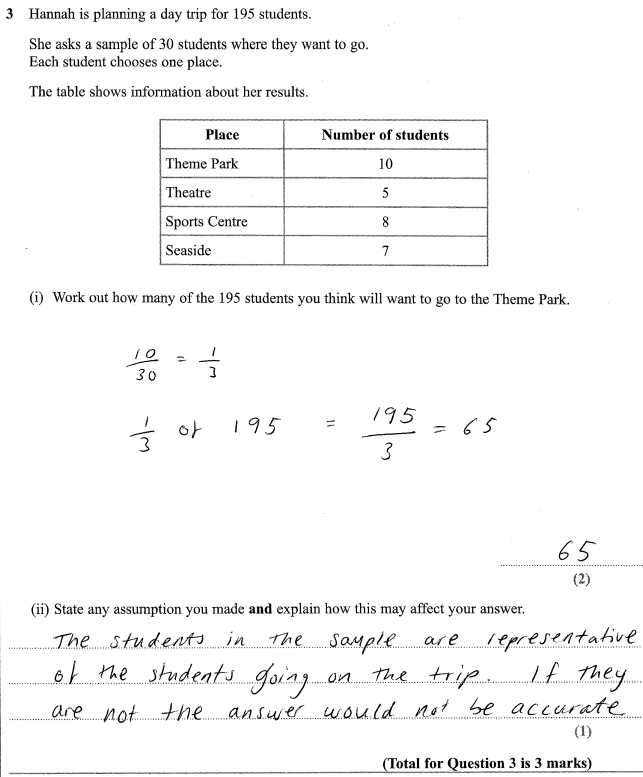 3 Hannah is planning a day trip for 195 students.
She asks a sample of 30 students where they want to go.
Each student chooses one place.
The table shows information about her results.
Place Number of students
Theme Park 10
Theatre 5
Sports Centre 8
Seaside 7
(i) Work out how many of the 195 students you think will want to go to the Theme Park.
10/30 = 1/3
1/3 of 195 = 195/3 = 65
65
(2)
(ii) State any assumption you made and explain how this may affect your answer.
The students in the sample are representative
of the students going on the trip. If they
are not the answer would not be accurate
(1)
(Total for Question 3 is 3 marks)